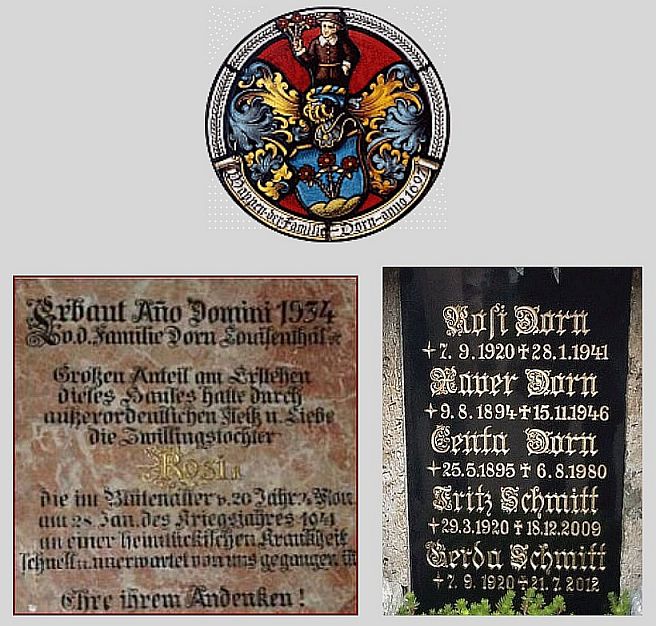 Wappen der Familie Dorn anno 1697
Erbaut Año Domini 1934
v. d. Familie Dorn Louisenthal
Großen Anteil am Erstehen
dieses Hauses hatte durch
außerordentlichen Fleiß u. Liebe
die Zwillingstochter
Rosi
die im Blütenalter v. 20 Jahr. 4 Mon.
am 28. Jan. des Kriegsjahres 1941
an einer heimtückischen Krankheit
schnell u. unerwartet von uns gegangen ist
Ehre ihrem Andenken!
Rosi Dorn
7. 9. 1920 ✝ 28. 1. 1941
Xaver Dorn
9. 8. 1894 ✝ 15. 11. 1946
Centa Dorn
25. 5. 1895 ✝ 6. 8. 1980
Fritz Schmitt
29. 3. 1920 ✝ 18. 12. 2009
Gerda Schmitt
7. 9. 1920 ✝ 21. 7. 2012